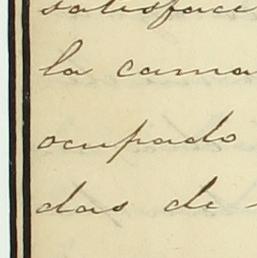 satisface
la cama
ocupado
das de